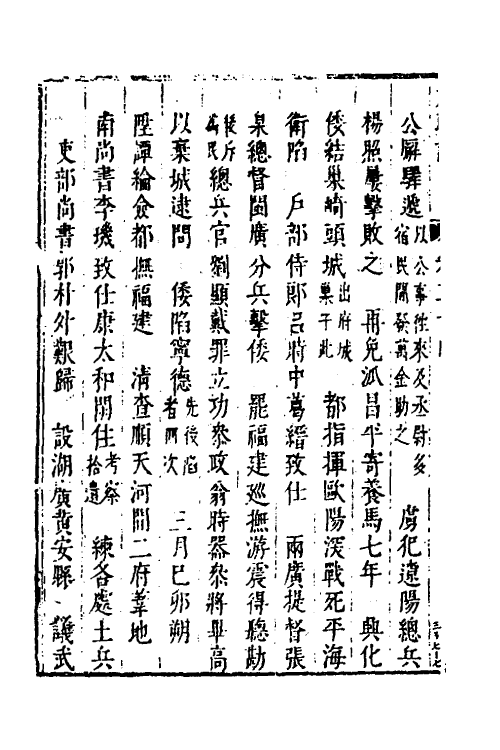 公廨驛遞以公事往來及丞尉多宿民間發萬金助之　虜犯遼陽總兵
楊照屢擊敗之　再免派昌平寄養馬七年　興化
倭結巢崎頭城出府城巢于此　都指揮歐陽深戰死平海
衛陷　戶部侍郎呂時中葛縉致仕　兩廣提督張
臬總督閩廣分兵擊倭　罷福建巡撫游震得聽勘
後斥為民總兵官劉顯戴罪立功參政翁時器參將畢高
以棄城逮問　倭陷寧德先後陷者兩次　三月巳卯朔
陞譚綸僉都撫福建　清查順天河間二府葦地
南尚書李璣致仕康太和閒住考察拾遺　練各處土兵
吏部尚書郭朴外艱歸　設湖廣黃安縣　議武